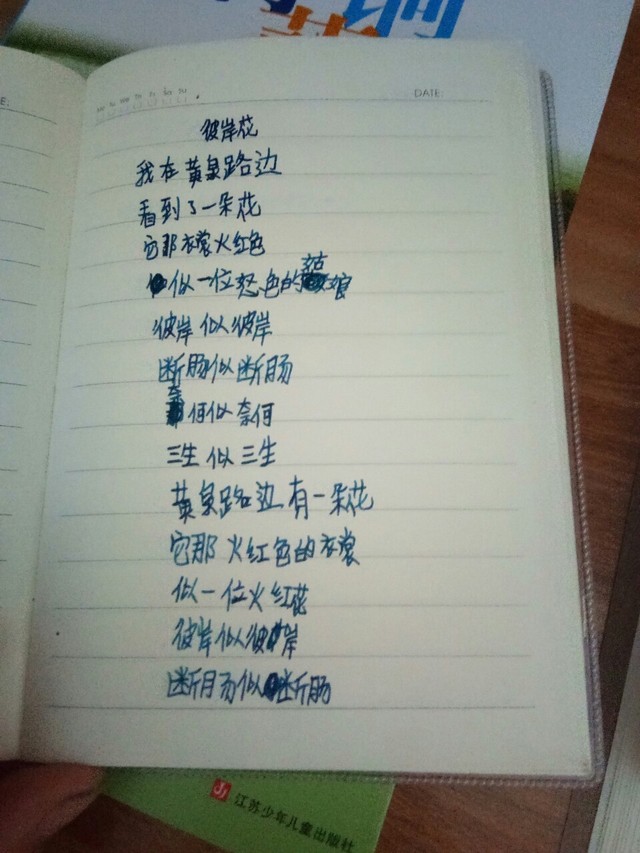 DATE:
彼岸花
我在黄泉路边
看到了一朵花
它那衣裳火红色
似一位怒色的姑娘
彼岸似彼岸
断肠似断肠
奈何似奈何
三生似三生
黄泉路边有一朵花
它那火红色的衣裳
似一位火红花
彼岸似彼岸
断肠似断肠
江苏少年儿童出版社